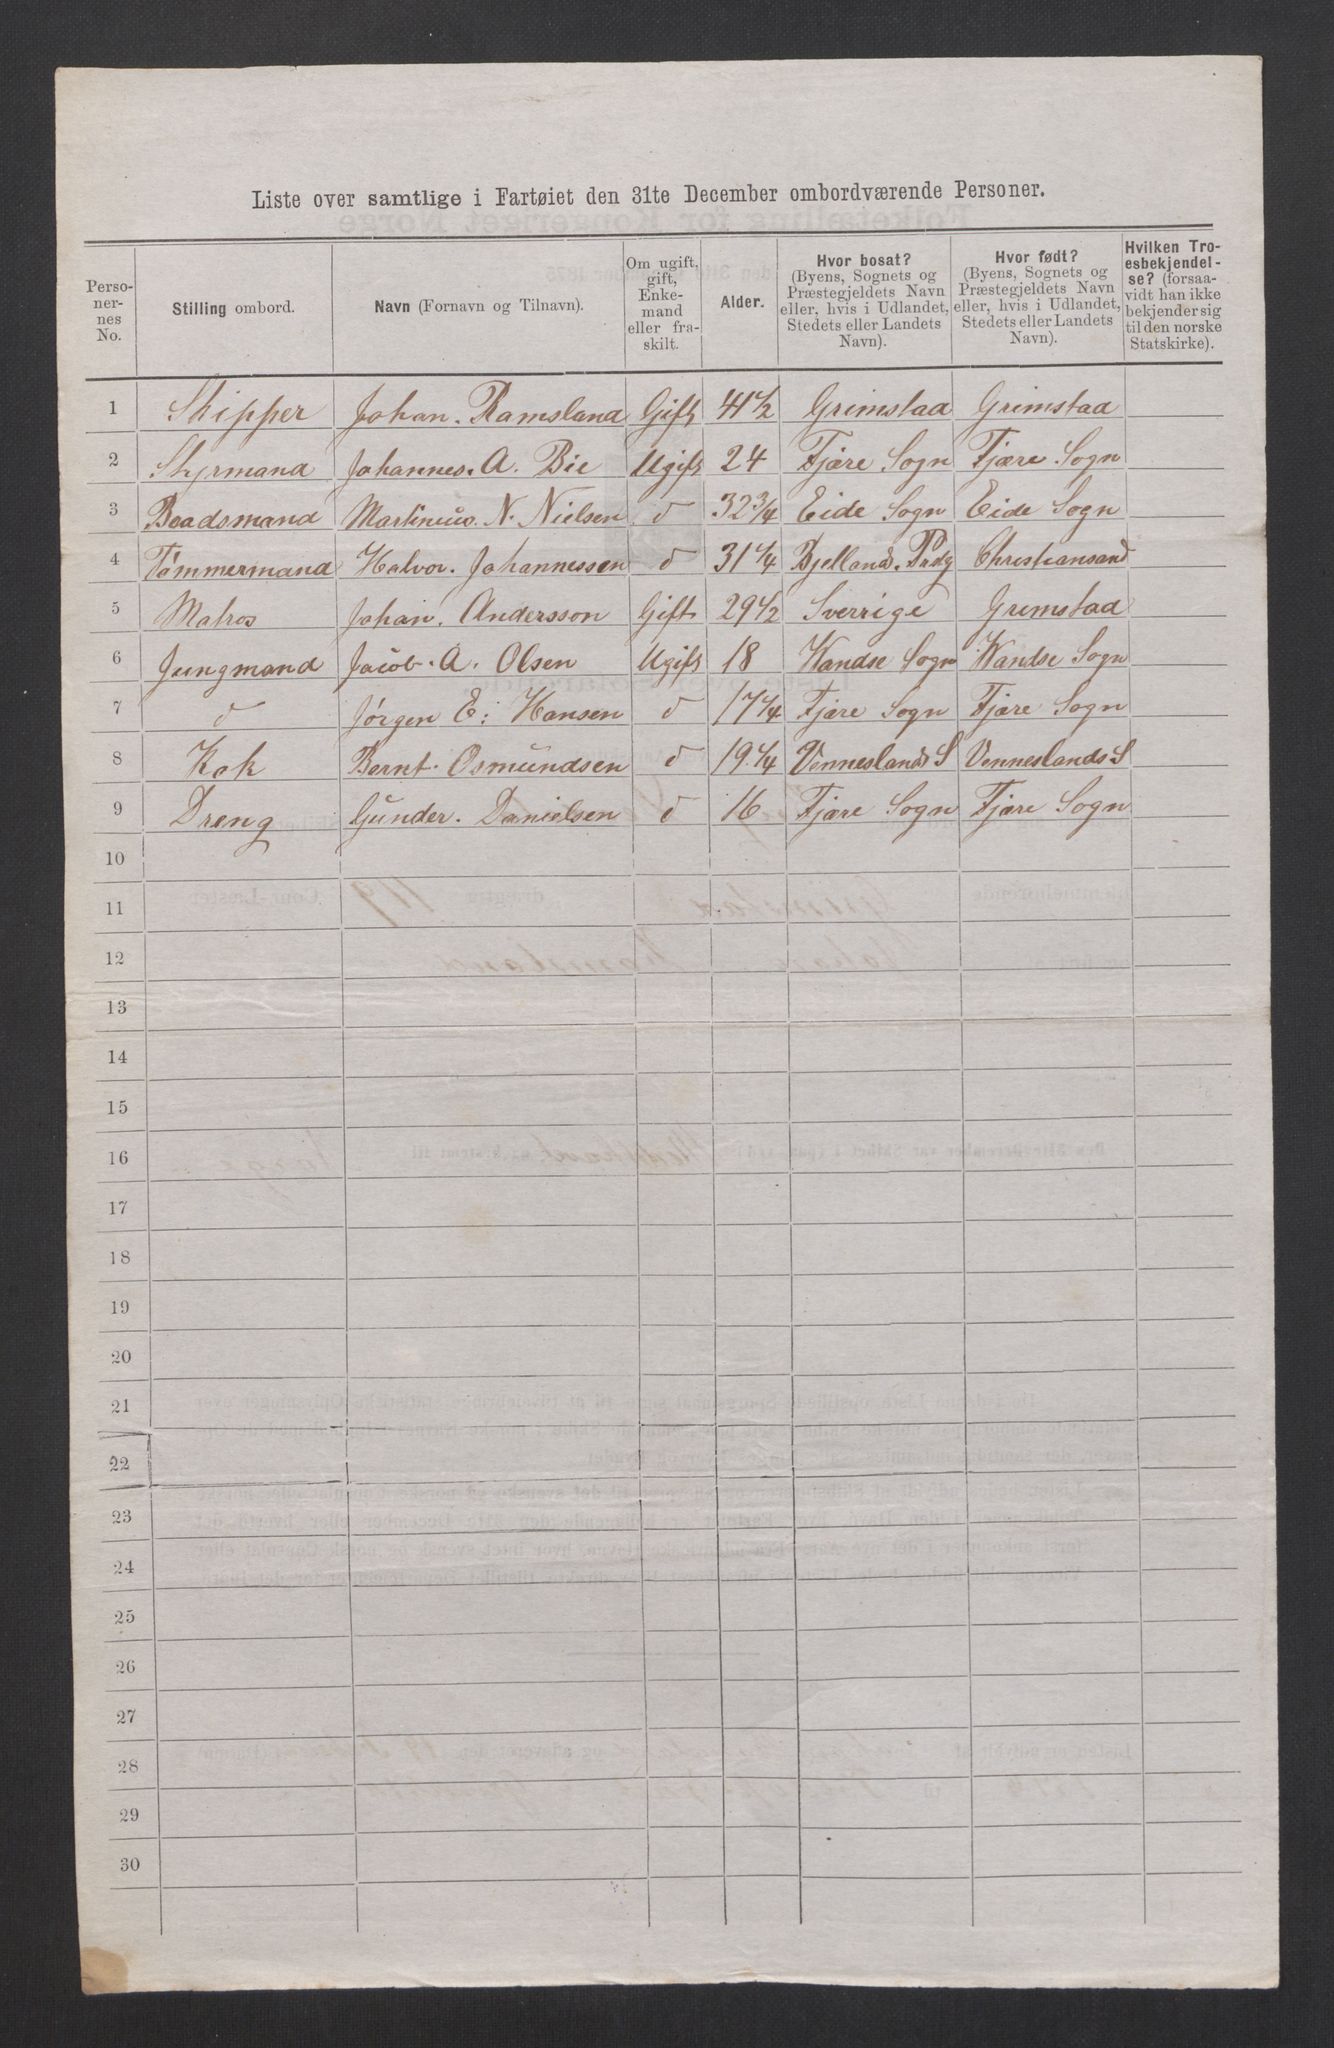 Liste over samtlige i Fartøiet den 31te December ombordværende Personer.
Personernes No. | Stilling ombord. | Navn (Fornavn og Tilnavn). | Om ugift, gift, Enkemand eller fraskilt. | Alder. | Hvor bosat? (Byens, Sognets og Præstegjeldets Navn eller, hvis i Udlandet, Stedets eller Landets Navn). | Hvor født? (Byens, Sognets og Præstegjeldets Navn eller, hvis i Udlandet, Stedets eller Landets Navn). | Hvilken Troesbekjendelse? (forsaavidt han ikke bekjender sig til den norske Statskirke).
1 | Skipper | Johan. Ramsland | Gift | 41 1/2 | Grimstad | Grimstad
2 | Styrmand | Johannes. A. Bie | Ugift | 24 | Fjære Sogn | Fjære Sogn
3 | Baadsmand | Martinius. N. Nielsen | d | 32 3/4 | Eide Sogn | Eide Sogn
4 | Tømmermand | Halvor. Johannessen | d | 31 1/4 | Bjelland. Prdg | Christiansand
5 | Matros | Johan. Andersson | Gift | 29 1/2 | Sverrige | Grimstad
6 | Jungmand | Jacob. A. Olsen | Ugift | 18 | Wandse Sogn | Wandse Sogn
7 | d | Jørgen E: Hansen | d | 17 1/4 | Fjære Sogn | Fjære Sogn
8 | Kok | Bernt. Osmundsen | d | 19 1/4 | Venneslands S | Venneslands S
9 | Dreng | Gunder. Danielsen | d | 16 | Fjære Sogn | Fjære Sogn
10
11
12
13
14
15
16
17
18
19
20
21
22
23
24
25
26
27
28
29
30